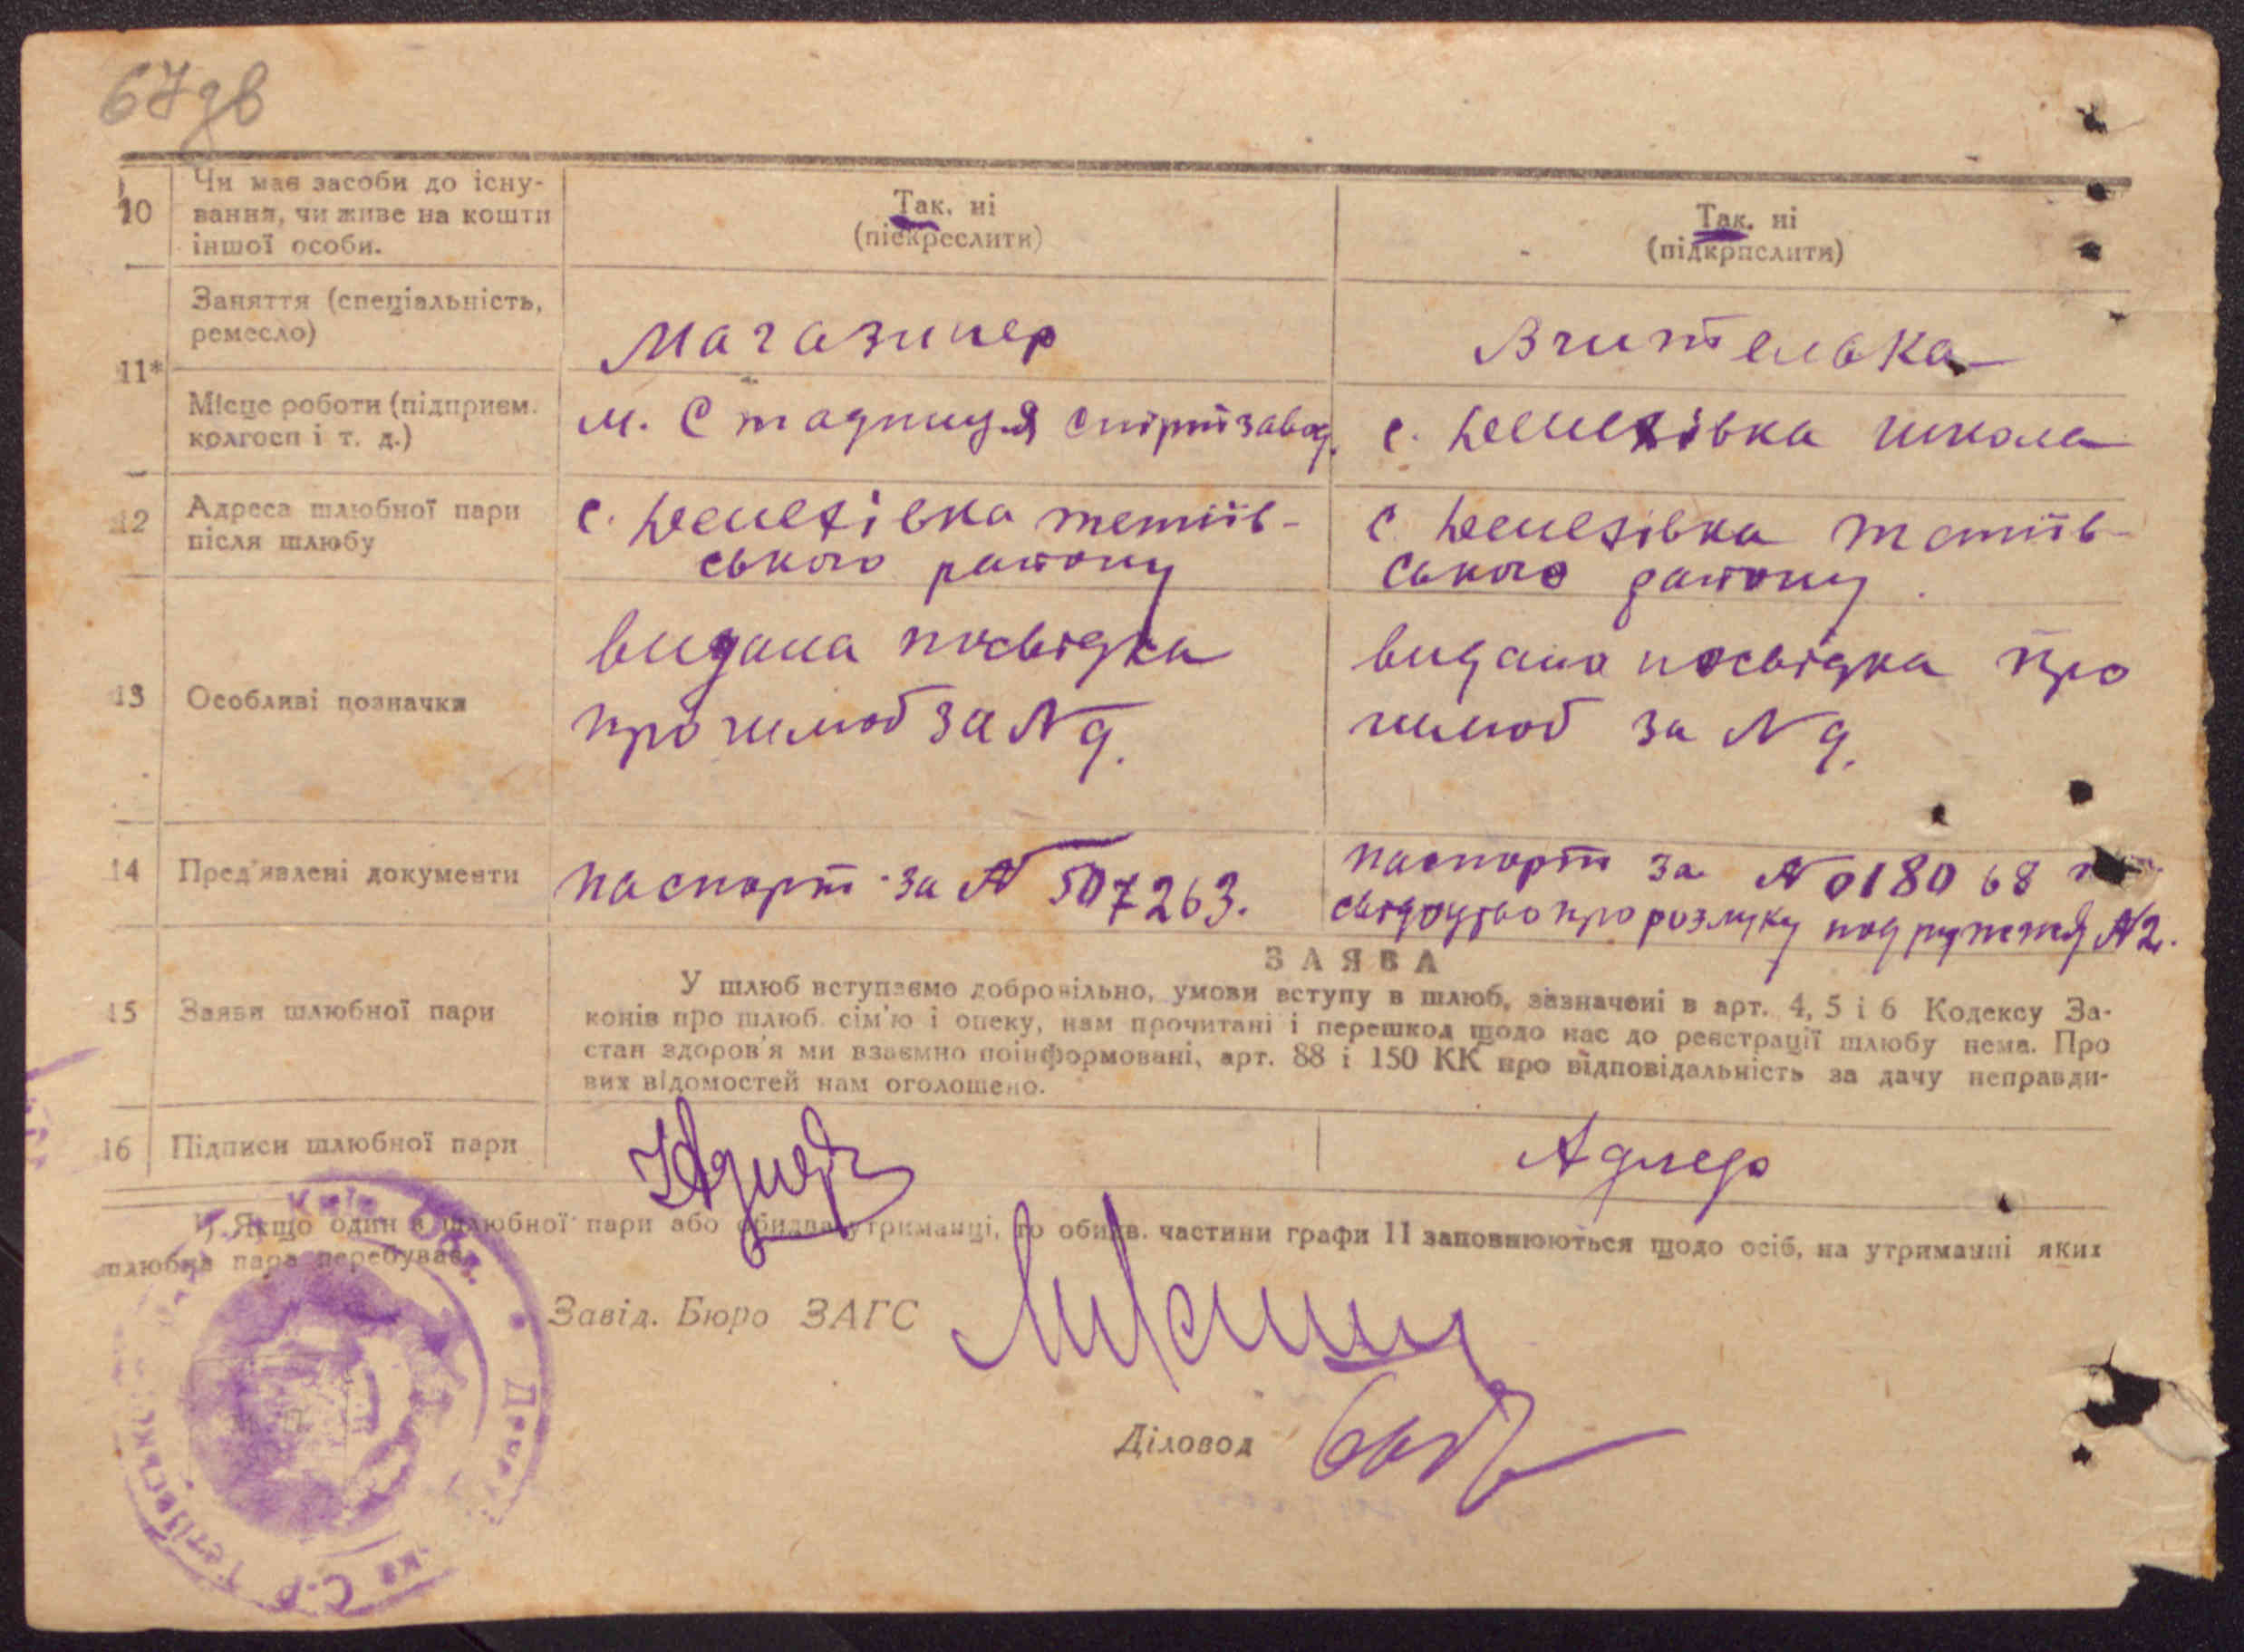 67зв
10
Чи має засоби до існу-
вання, чи живе на кошти
іншої особи.
Так, ні
(підкреслити)
Так, ні
(підкрпслити)
11*
Заняття (спеціальність,
ремесло)
Магазинер
Вчителька
Місце роботи (підприєм.
колгосп і т. д.)
м. Стадниця спиртзавод.
с. Денгезівка школа
12
Адреса шлюбної пари
після шлюбу
с. Денгезівка тетиїв-
ського району
с. Денгезівка тетиїв-
ського району.
13
Особливі позначки
видана посвідка
про шлюб за N 9.
видана посвідка про
шлюб за N 9.
14
Пред'явлені документи
паспорт за N 507263.
паспорт за N 018068
свідоцтво про розлуку подружжя N2.
15
Заяви шлюбної пари
ЗАЯВА
У шлюб вступаємо добровільно, умови вступу в шлюб, зазначені в арт. 4, 5 і 6 Кодексу За-
конів про шлюб сім'ю і опеку, нам прочитані і перешкод щодо нас до реєстрації шлюбу нема. Про
стан здоров'я ми взаємно поінформовані, арт. 88 і 150 КК про відповідальність за дачу неправди-
вих відомостей нам оголошено.
16
Підписи шлюбної пари
Адлер
*) Якщо один з шлюбної пари або обидва утриманці, то обидв. частини графи 11 заповнюються щодо осіб, на утриманні яких
шлюбна пара перебуває.
Завід. Бюро ЗАГС
Діловод
Київ. Обл.
С.Р. Тетіївськ